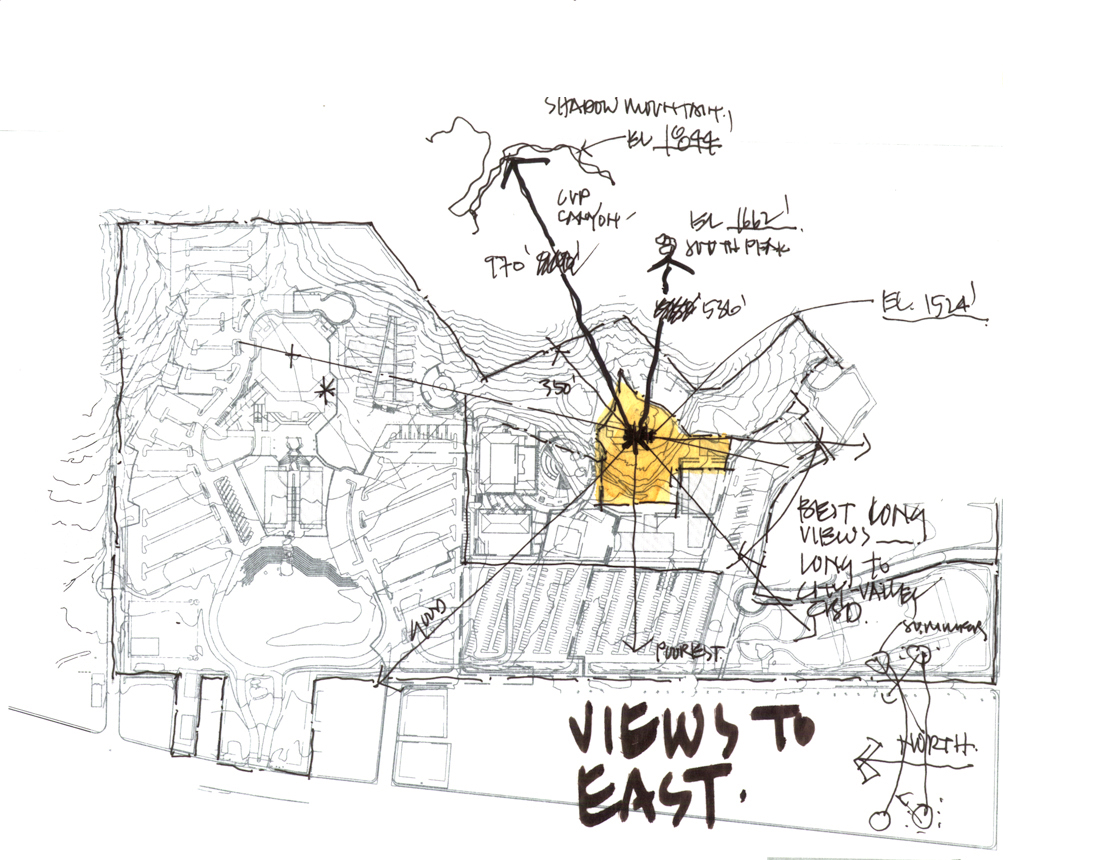 SHADOW MOUNTAIN
EL 1844
CUP
CANYON
EL 1662'
SOUTH PEAK
970'
536'
EL. 1524'
350'
BEST LONG
VIEWS
LONG TO
CITY VALLEY
CBD.
SUMMER
POOREST.
NORTH.
VIEWS TO
EAST.